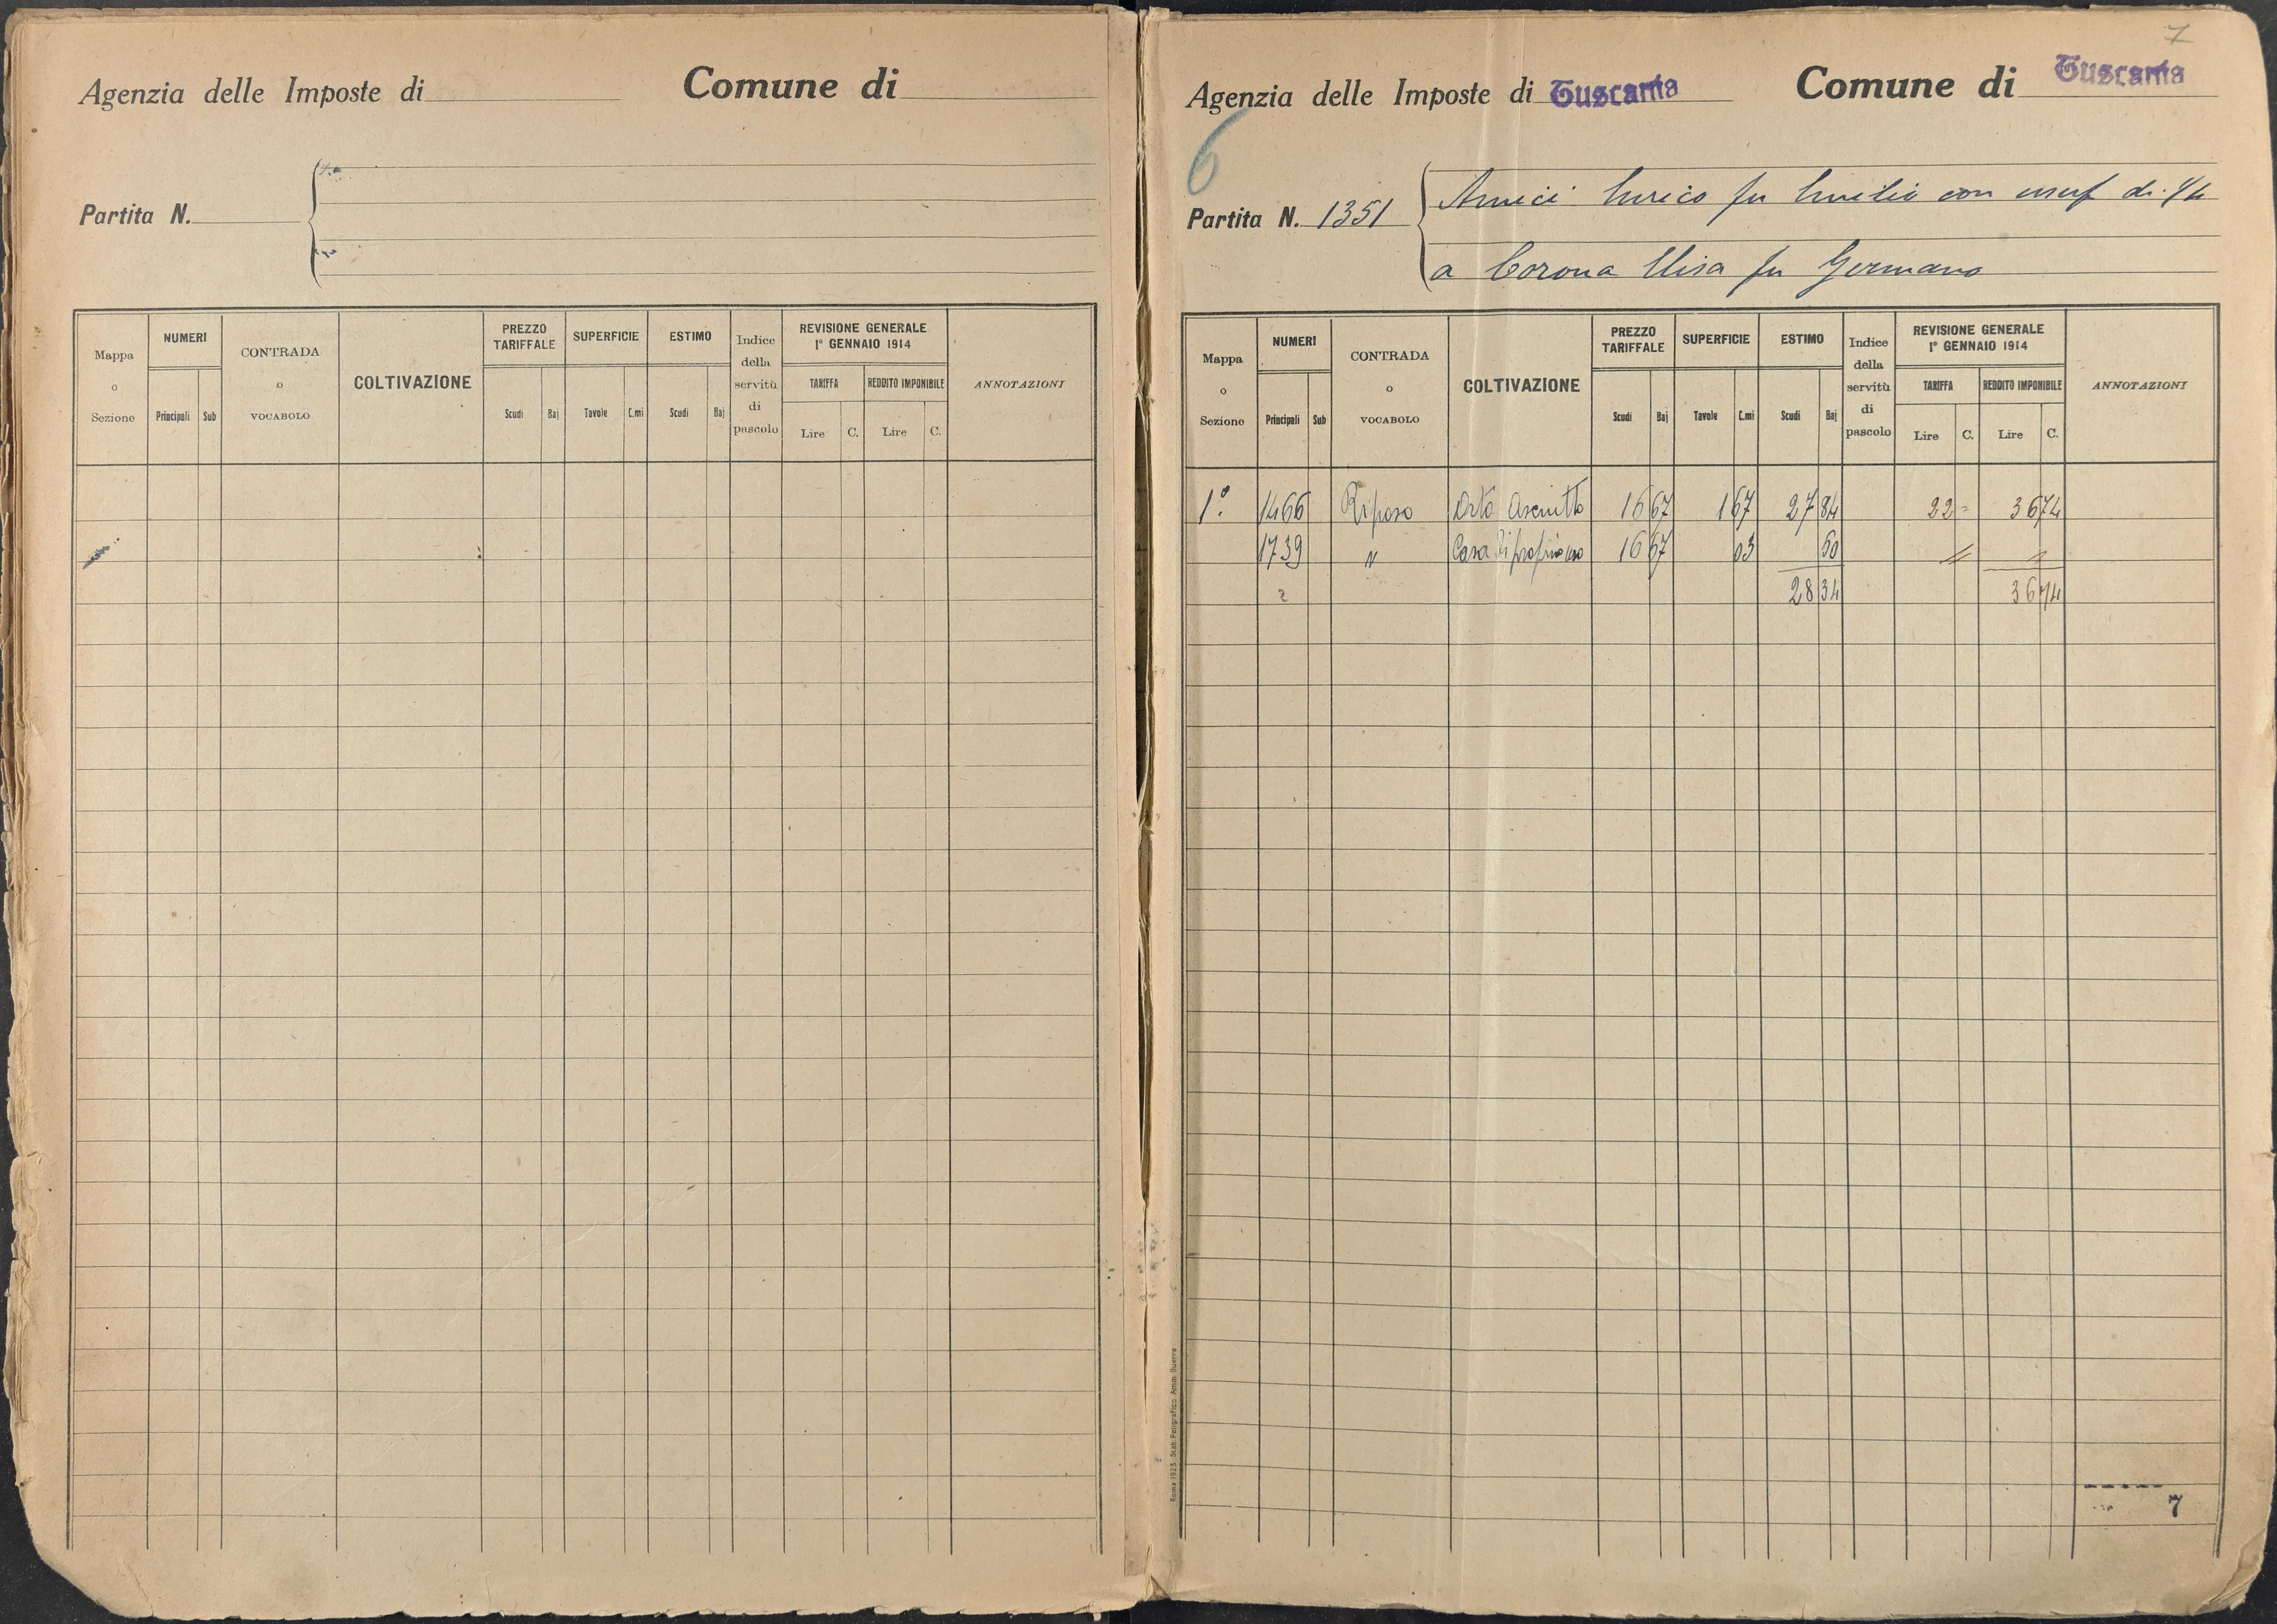 Agenzia delle Imposte di
Comune di
Partita N.
Mappa o Sezione
NUMERI
Principali Sub
CONTRADA o VOCABOLO
COLTIVAZIONE
PREZZO TARIFFALE
Scudi Baj
SUPERFICIE
Tavole C.mi
ESTIMO
Scudi Baj
Indice della servitù di pascolo
REVISIONE GENERALE
1° GENNAIO 1914
TARIFFA
Lire C.
REDDITO IMPONIBILE
Lire C.
ANNOTAZIONI
7
Agenzia delle Imposte di Tuscania
Comune di Tuscania
6
Partita N. 1351
Amici Enrico fu Emilio con usuf di 1/4
a Corona Elisa fu Germano
Mappa o Sezione
NUMERI
Principali Sub
CONTRADA o VOCABOLO
COLTIVAZIONE
PREZZO TARIFFALE
Scudi Baj
SUPERFICIE
Tavole C.mi
ESTIMO
Scudi Baj
Indice della servitù di pascolo
REVISIONE GENERALE
1° GENNAIO 1914
TARIFFA
Lire C.
REDDITO IMPONIBILE
Lire C.
ANNOTAZIONI
1° 1466 Riposo Orto Asciutto 16 67 1 67 27 84 22 = 36 74
1739 " Casa di proprio uso 16 67 03 50 " "
2 28 34 36 74
Roma 1923. Stab. Poligrafico Amm. Guerra
7